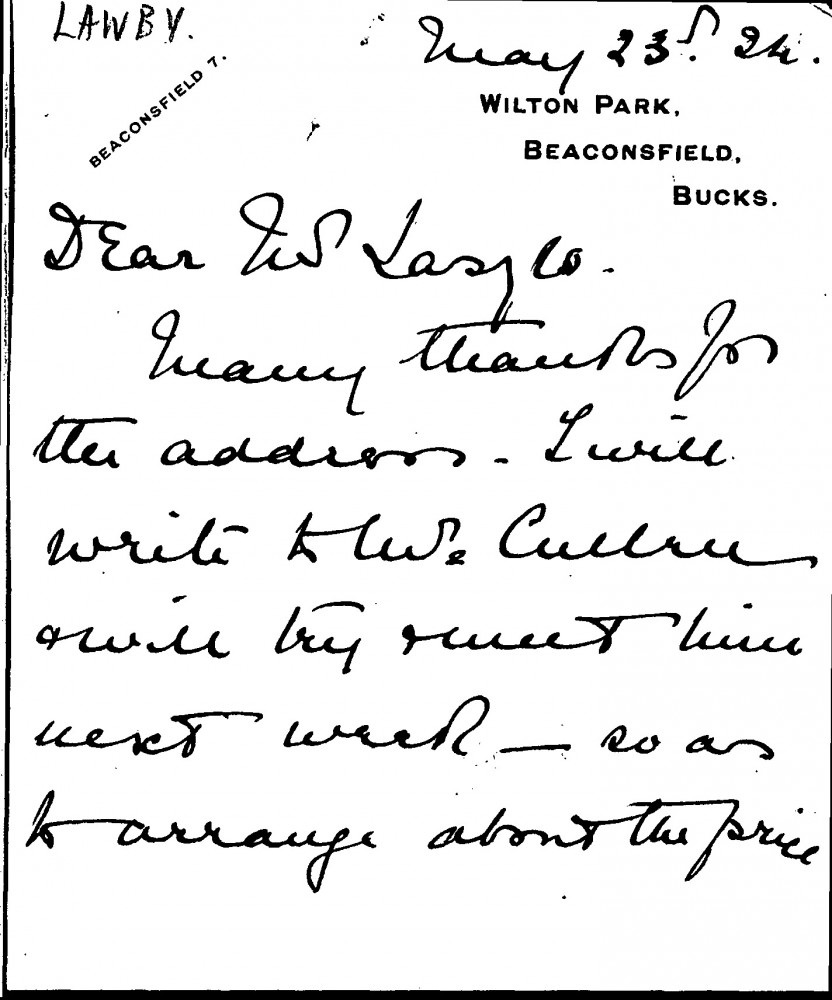 LAWBY.
May 23rd. 24.
BEACONSFIELD 7.
WILTON PARK,
BEACONSFIELD,
BUCKS.
Dear Mr Laszlo.
Many thanks for
the address - I will
write to Mr Cullen
& will try & meet him
next week — so as
to arrange about the price